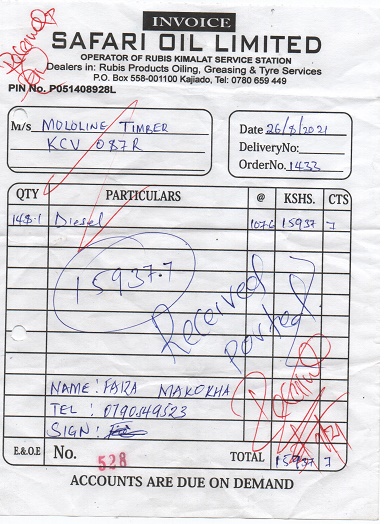 INVOICE
SAFARI OIL LIMITED
OPERATOR OF RUBIS KIMALAT SERVICE STATION
Dealers in: Rubis Products Oiling, Greasing & Tyre Services
P.O. Box 558-001100 Kajiado, Tel: 0780 659 449
PIN No. P051408928L
M/s MOLOLINE TIMBER
KCV 087R
Date 26/8/2021
DeliveryNo:
OrderNo. 1433
QTY PARTICULARS @ KSHS. CTS
148.1 Diesel 107.6 15937 7
15937.7
Received
posted
NAME: FAIZA MAKOKHA
TEL: 0790549523
SIGN:
E.&O.E No. 528 TOTAL 15937 7
ACCOUNTS ARE DUE ON DEMAND